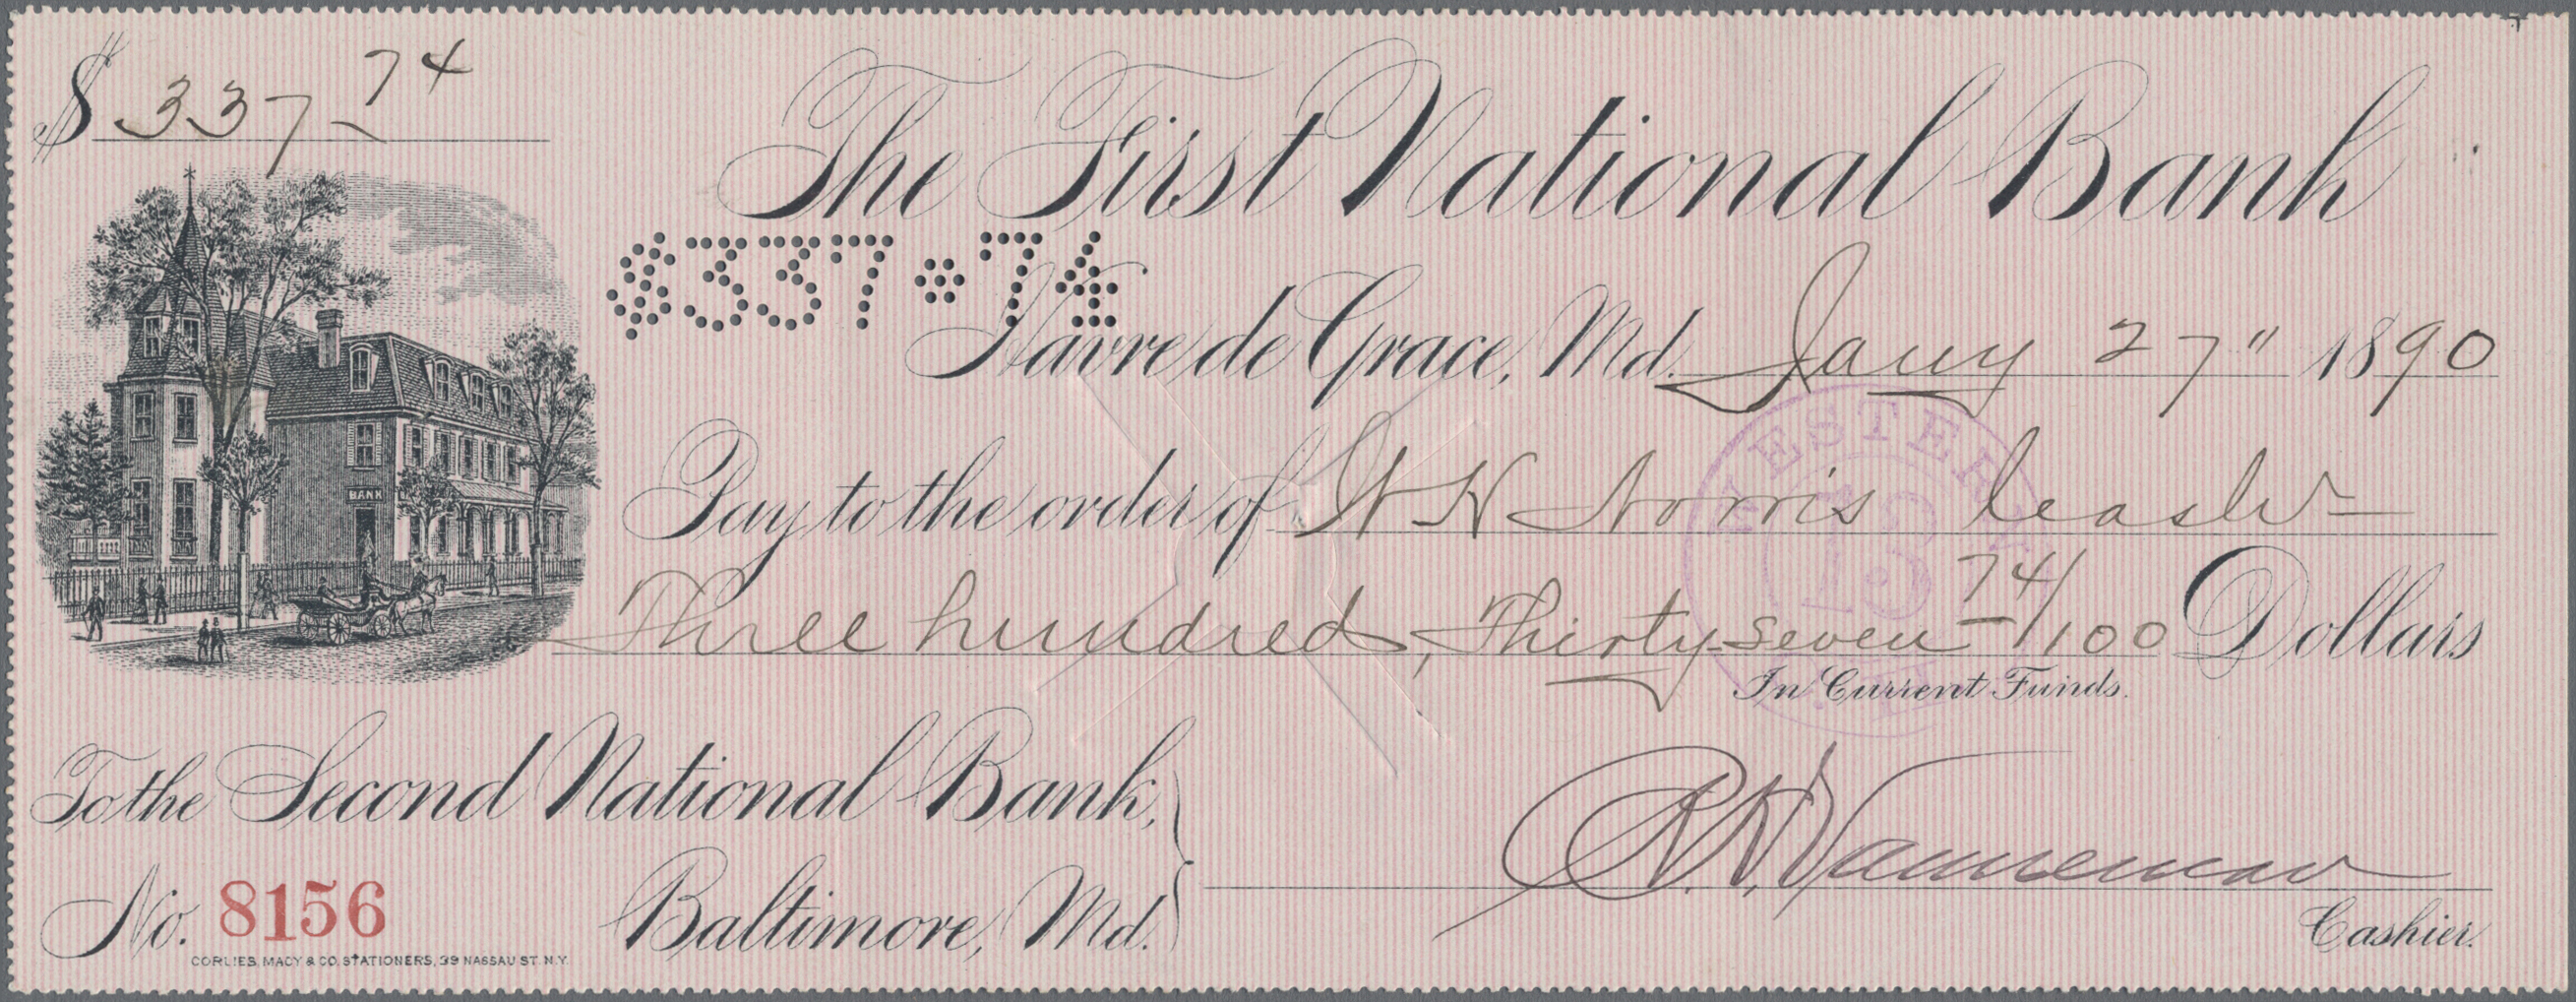 $ 337 74
The First National Bank
$337*74
Havre de Grace, Md. Jany 27" 1890
Pay to the order of W H Norris Cashr
Three hundred, Thirty seven 74/100 Dollars
In Current Funds.
WESTERN
13
13
BANK
To the Second National Bank,
Baltimore, Md.
No. 8156
R. H. Vanneman
Cashier.
CORLIES, MACY & CO. STATIONERS, 39 NASSAU ST. N.Y.